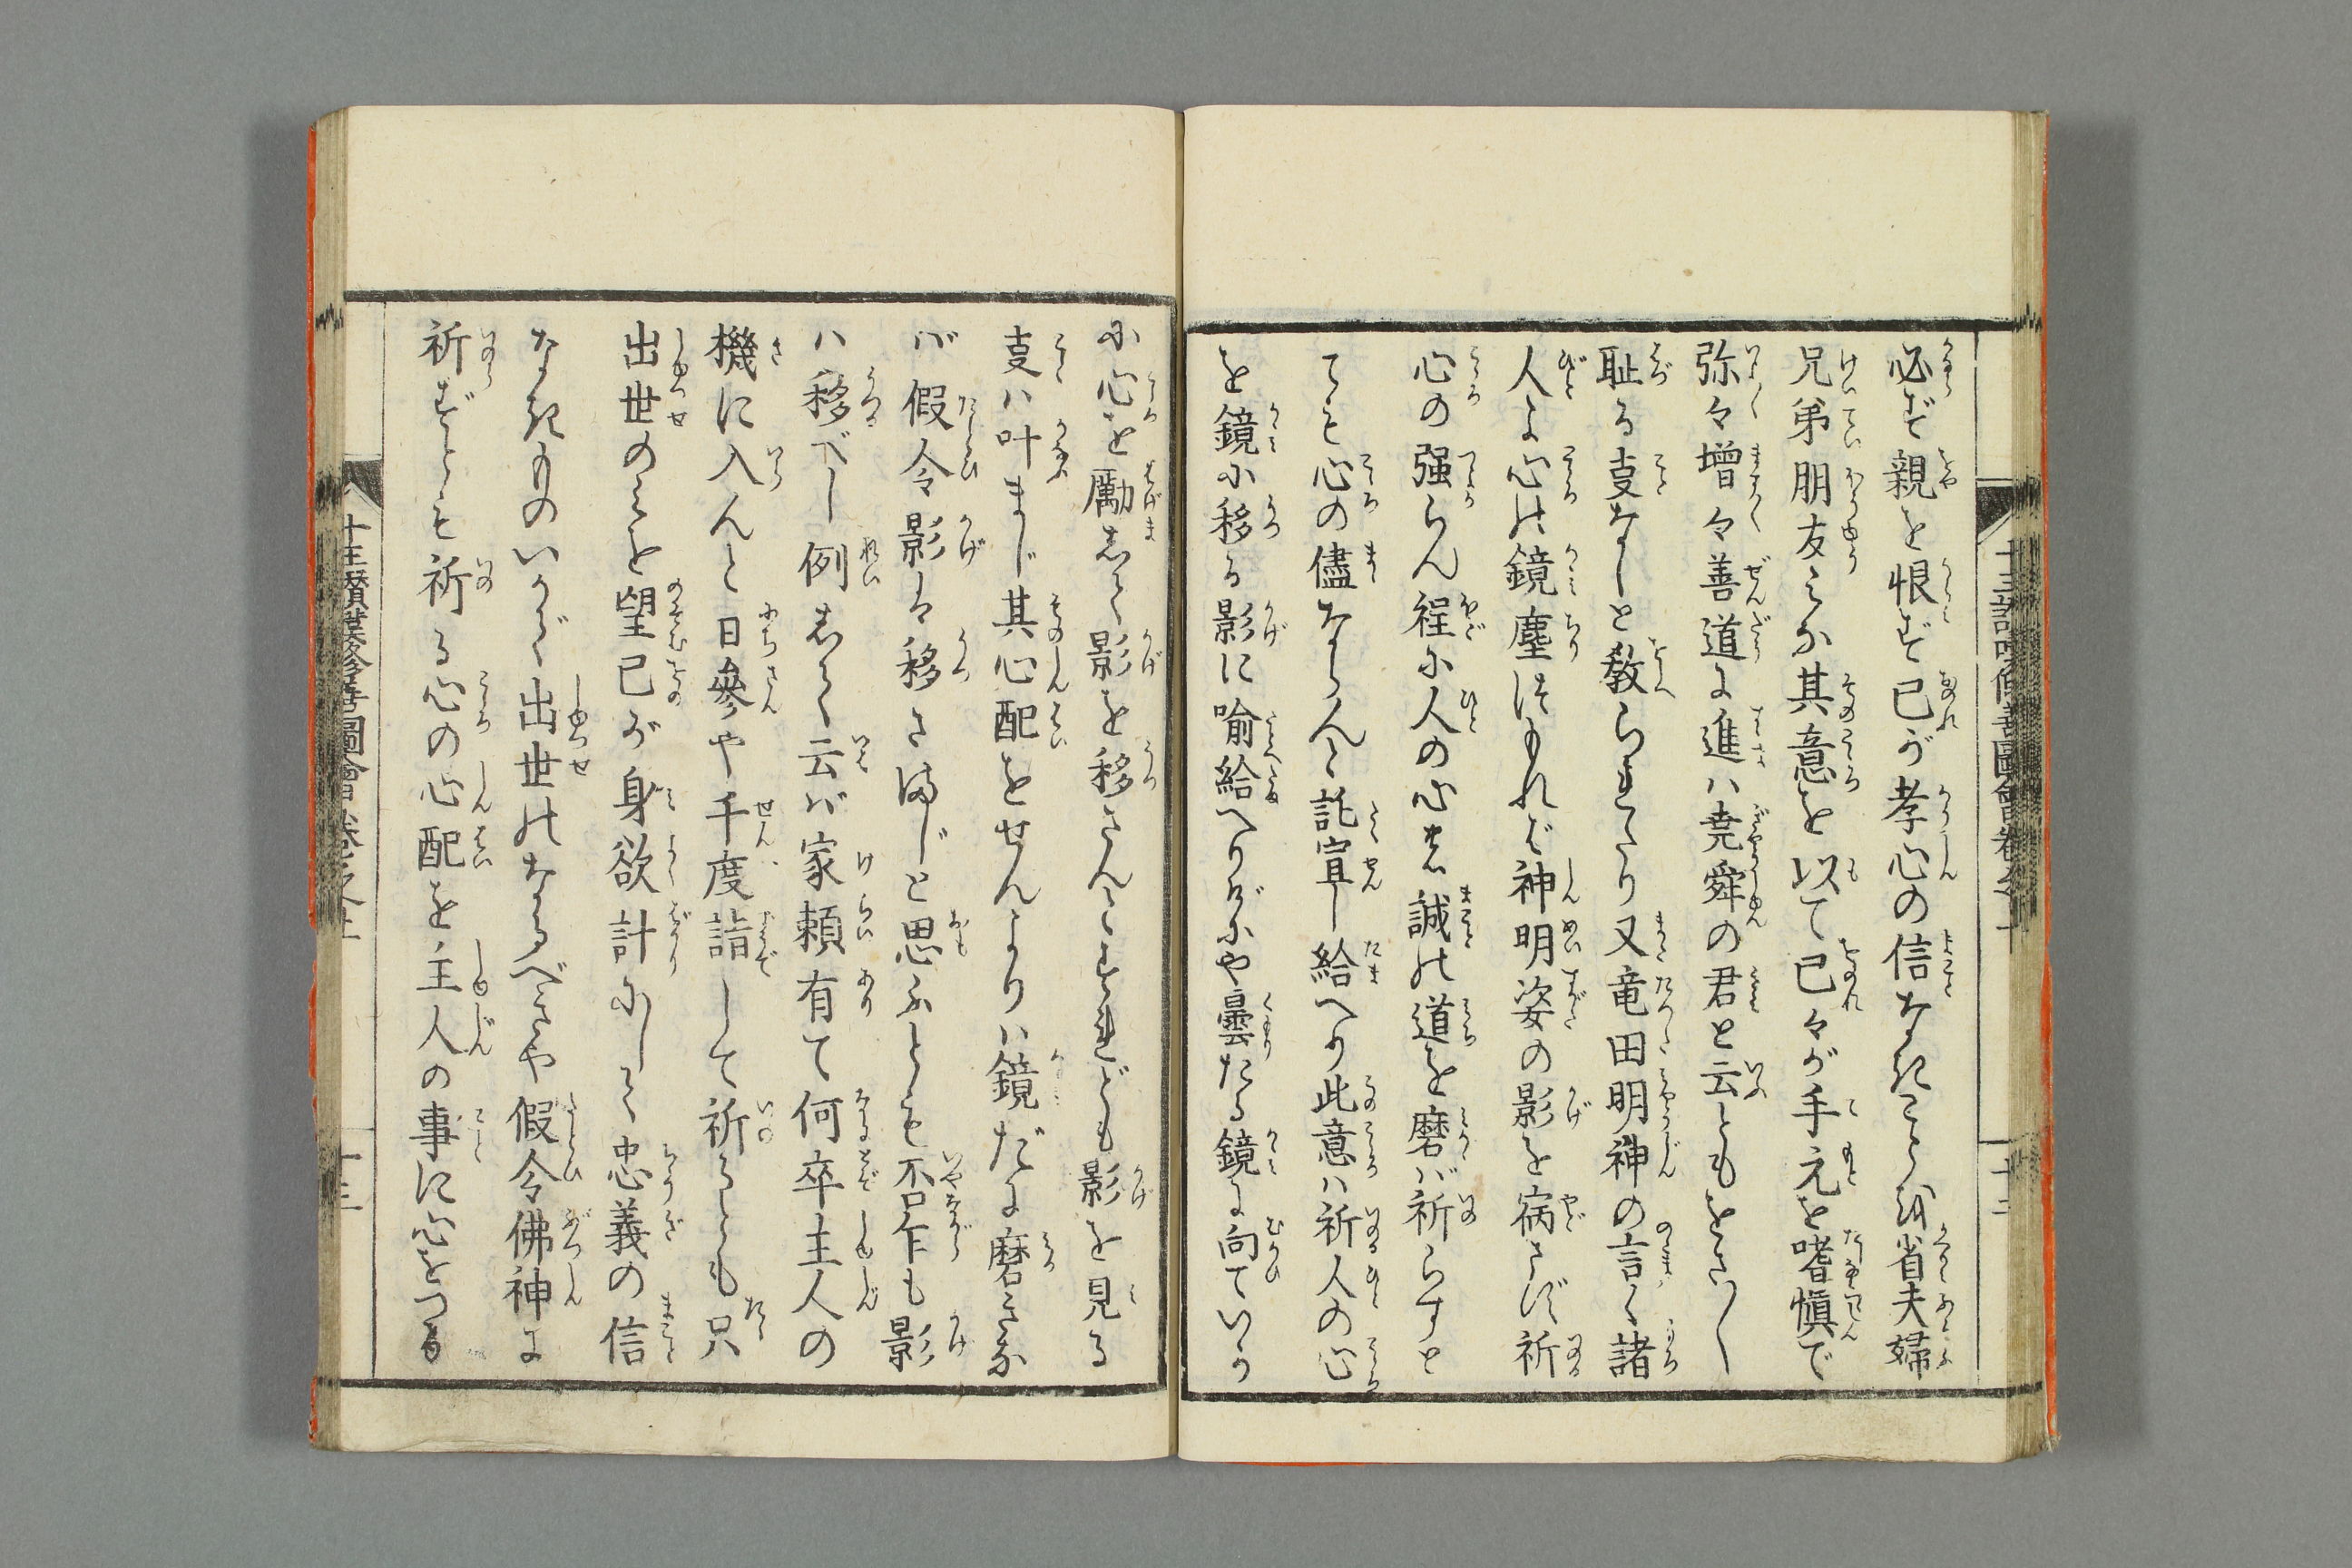 必ず親を恨ず己が孝心の信なきことを省夫婦
兄弟朋友みな其意を以て己々が手元を嗜愼で
弥々増々善道に進ハ尭舜の君と云ともをさ〱
耻る㕝なしと教られたり又竜田明神の言く諸
人よ心の鏡塵つもれバ神明姿の影を病さず祈
心の强らん程に人の心も誠の道を磨バ祈らずと
ても心の儘ならんと託宣し給へり此意ハ祈人の心
を鏡に移る影に喩給へりげにや曇たる鏡に向ていか
に心を勵して影を移さんとすれども影を見る
㕝ハ叶まじ其心配をせんよりハ鏡だに磨きな
バ假令影は移さまじと思ふとも否乍も影
ハ移べし例して云バ家頼有て何卒主人の
機に入んと日參や千度詣して祈るとも只
出世のみを望己が身欲計にして忠義の信
なきものいかで出世のなるべきや假令佛神に
祈ずとも祈る心の心配を主人の事に心をつけ
十三